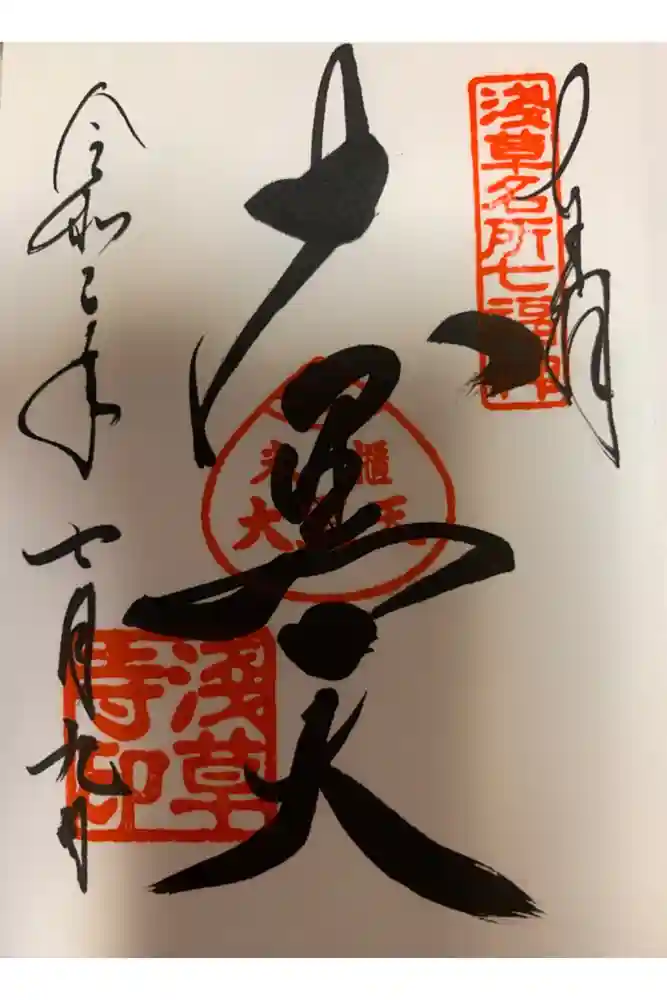 奉拝
浅草名所七福神
大黒天
米櫃
大黒天
浅草
寺印
令和二年七月九日